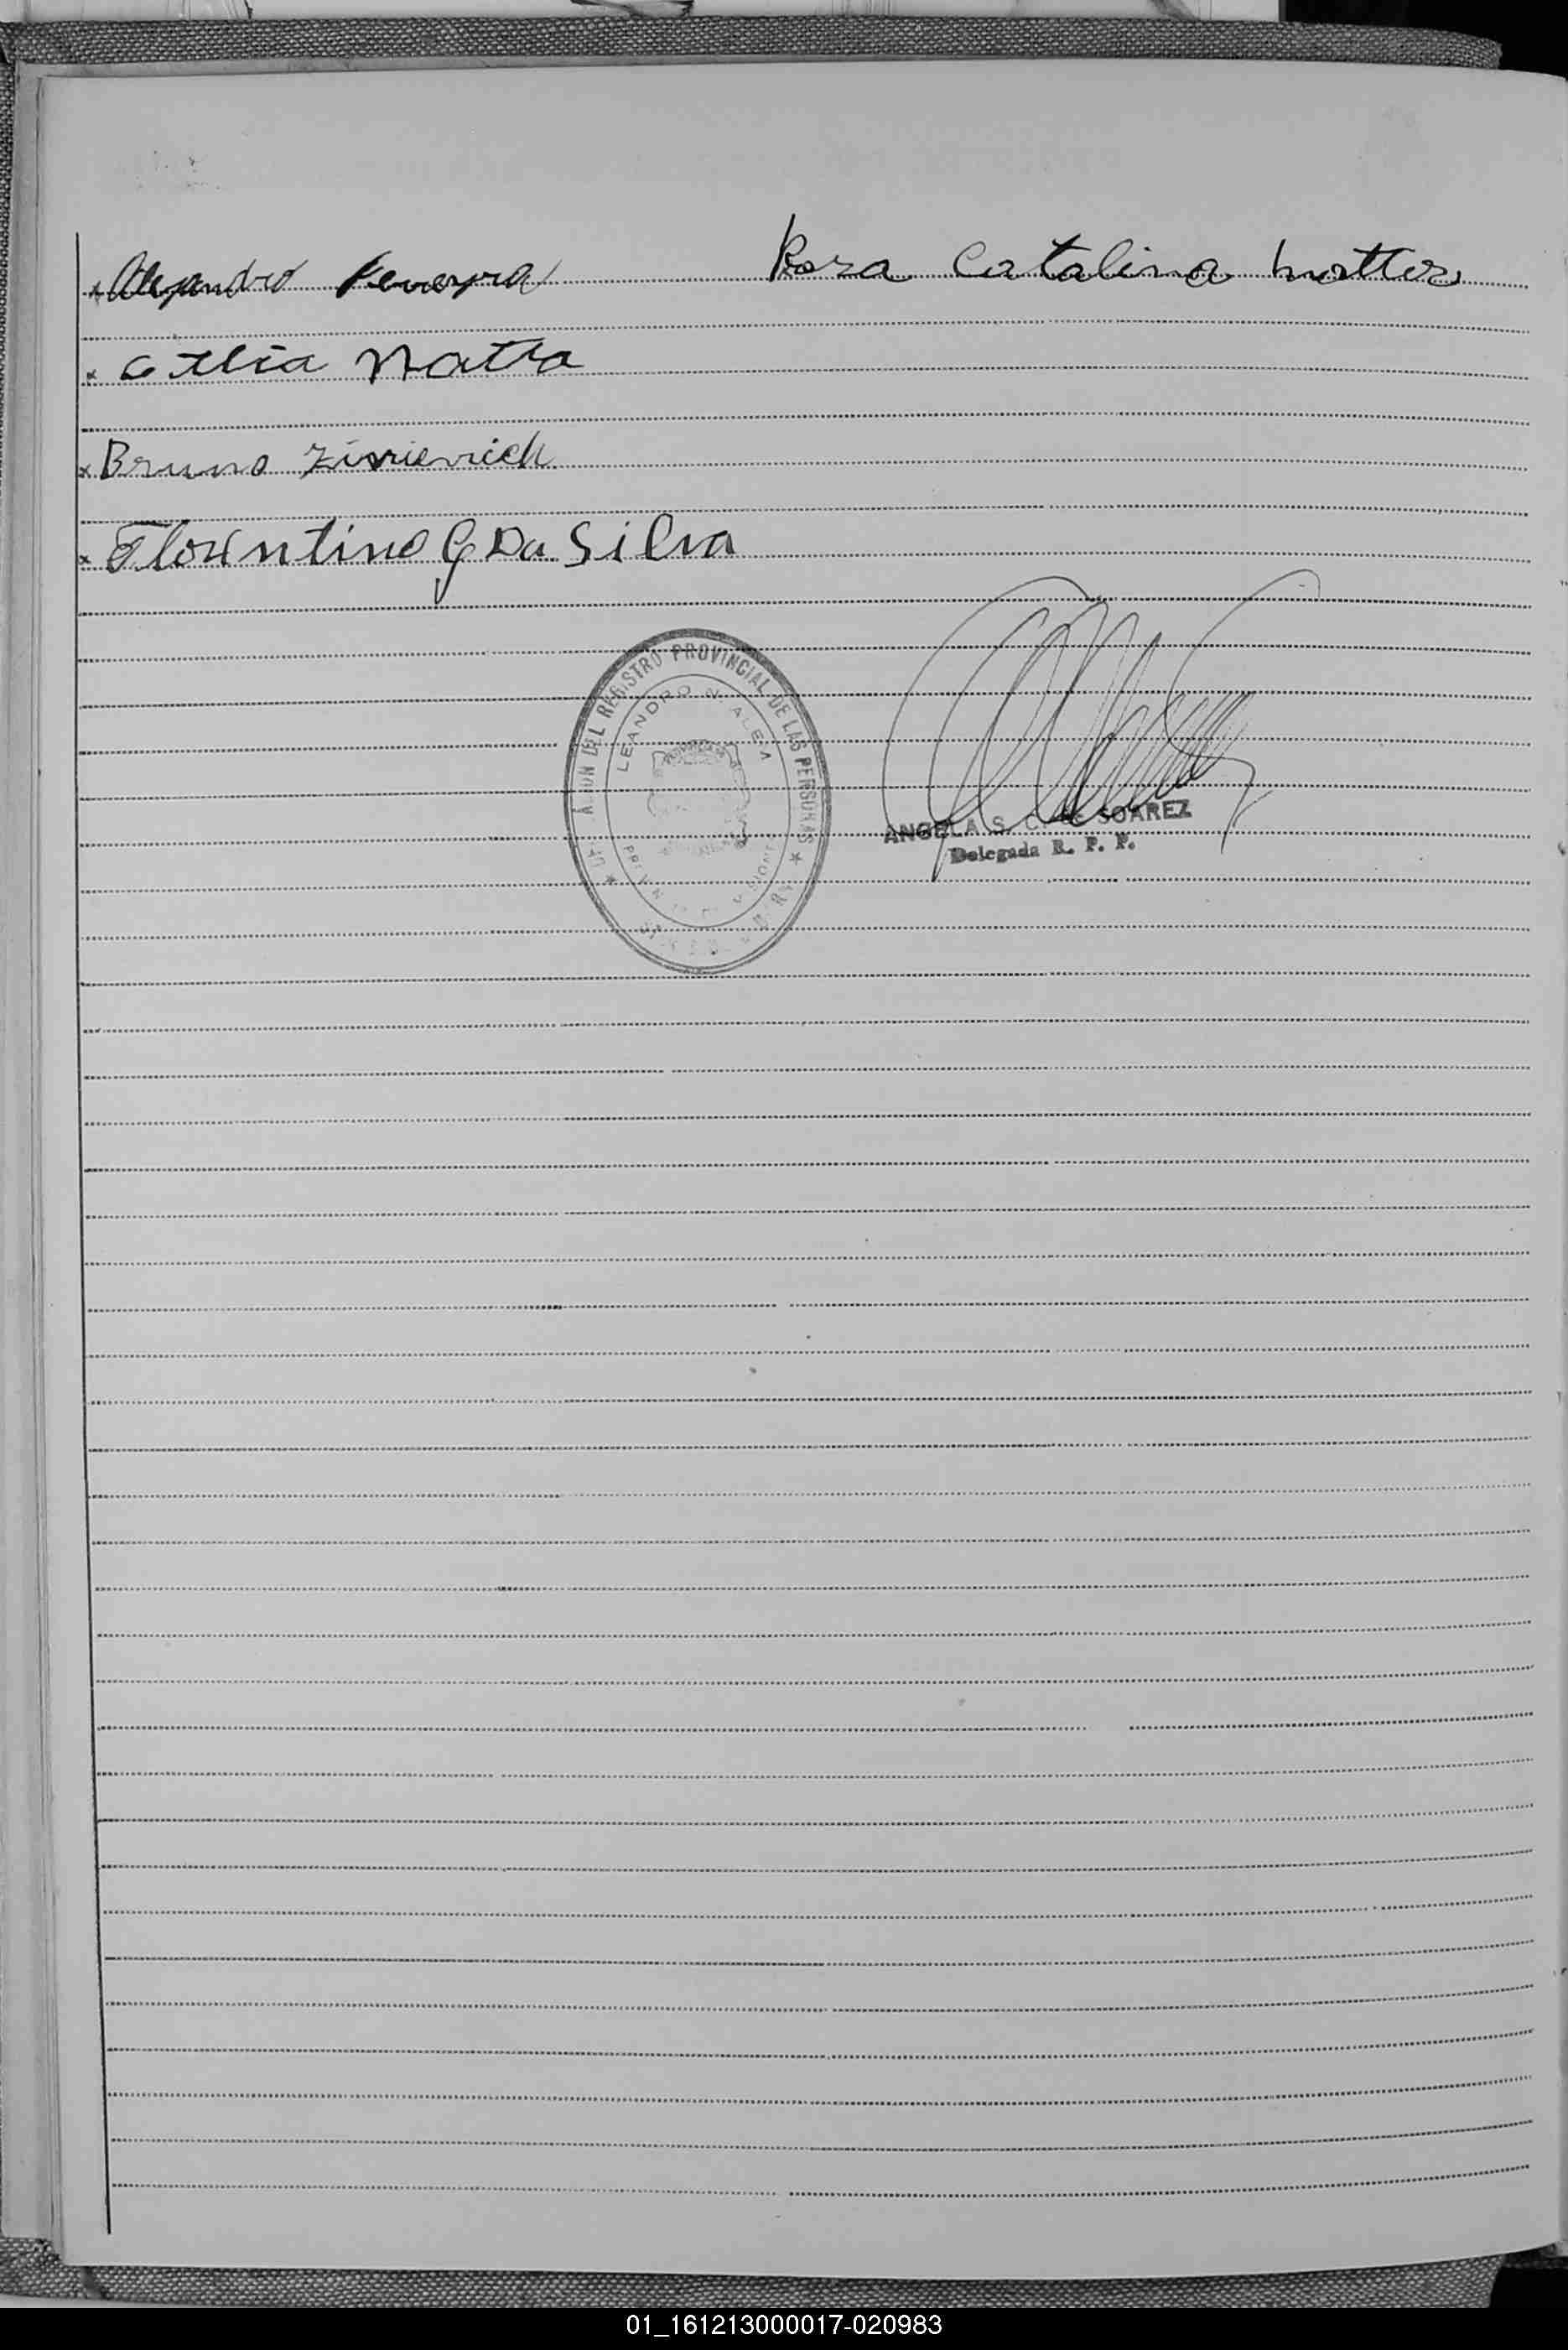 x Alejandro Ferreyra Rosa Catalina Mattos
x Celia Matto
x Bruno
x Florentino G Da Silva
DEL REGISTRO PROVINCIAL DE LAS PERSONAS
LEANDRO N. ALEM
ANGELA S. C. de SOAREZ
Delegada R. P. P.
01_161213000017-020983